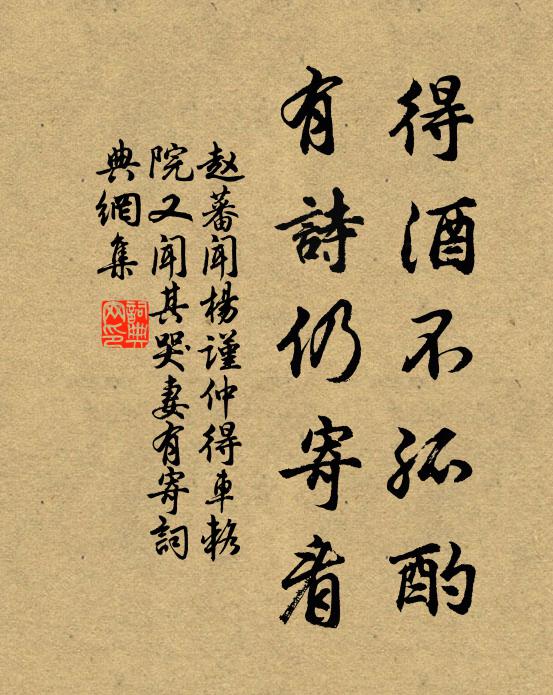 得酒不孤酌
有詩仍寄看
赵蕃闻楊謹仲得車輅
院又闻其哭妻有寄詞
典網集
詞典網印